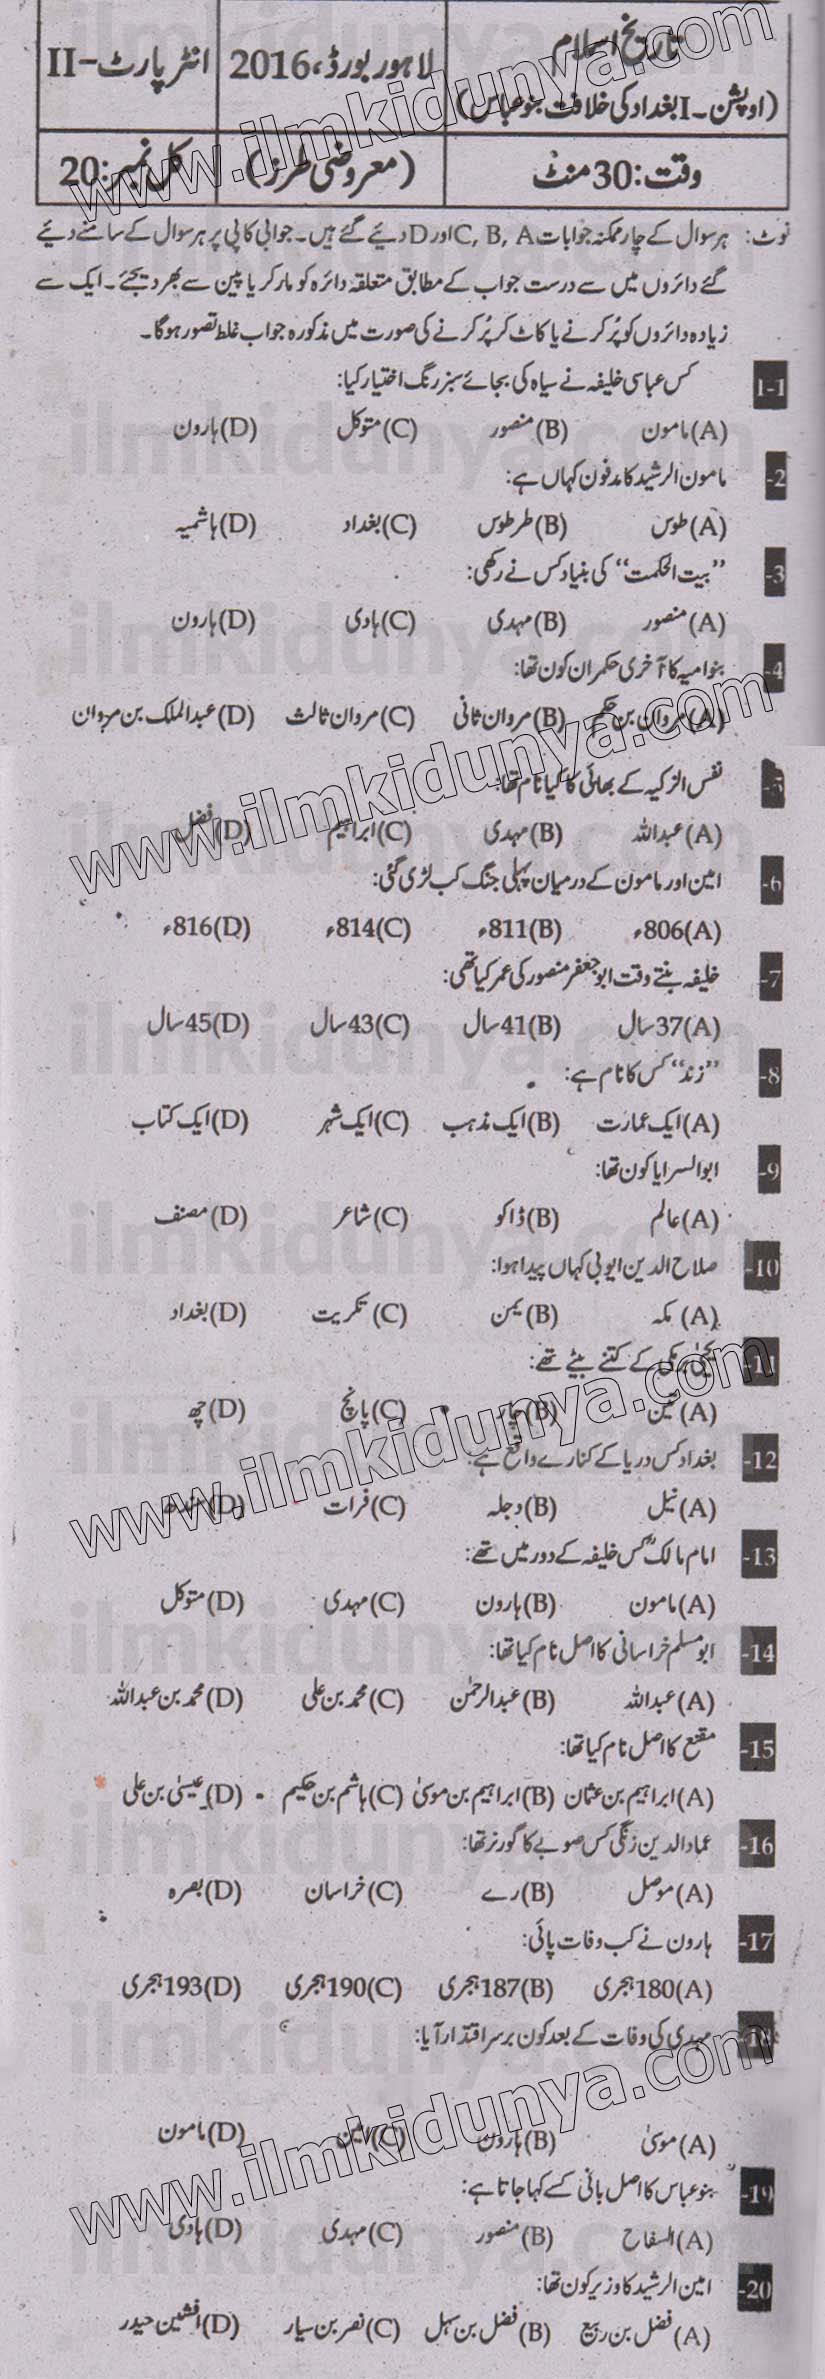 تاریخ اسلام
(اوپشن۔I بغداد کی خلافت بنو عباس)
لاہور بورڈ، 2016
انٹر پارٹ-II
وقت: 30 منٹ
(معروضی طرز)
کل نمبر: 20
نوٹ: ہر سوال کے چار ممکنہ جوابات C, B, A اور D دیئے گئے ہیں۔ جوابی کاپی پر ہر سوال کے سامنے دیئے
گئے دائروں میں سے درست جواب کے مطابق متعلقہ دائرہ کو مارکر یا پین سے بھر دیجئے۔ ایک سے
زیادہ دائروں کو پُر کرنے یا کاٹ کر پُر کرنے کی صورت میں مذکورہ جواب غلط تصور ہوگا۔
1-1 کس عباسی خلیفہ نے سیاہ کی بجائے سبز رنگ اختیار کیا:
(A) مامون (B) منصور (C) متوکل (D) ہارون
2- مامون الرشید کا مدفون کہاں ہے:
(A) طوس (B) طرطوس (C) بغداد (D) ہاشمیہ
3- ”بیت الحکمت“ کی بنیاد کس نے رکھی:
(A) منصور (B) مہدی (C) ہادی (D) ہارون
4- بنو امیہ کا آخری حکمران کون تھا:
(A) مروان بن حکم (B) مروان ثانی (C) مروان ثالث (D) عبدالملک بن مروان
5- نفس الزکیہ کے بھائی کا کیا نام تھا:
(A) عبداللہ (B) مہدی (C) ابراہیم (D) فضل
6- امین اور مامون کے درمیان پہلی جنگ کب لڑی گئی:
(A) 806ء (B) 811ء (C) 814ء (D) 816ء
7- خلیفہ بنتے وقت ابو جعفر منصور کی عمر کیا تھی:
(A) 37 سال (B) 41 سال (C) 43 سال (D) 45 سال
8- ”زند“ کس کا نام ہے:
(A) ایک عمارت (B) ایک مذہب (C) ایک شہر (D) ایک کتاب
9- ابوالسرایا کون تھا:
(A) عالم (B) ڈاکو (C) شاعر (D) مصنف
10- صلاح الدین ایوبی کہاں پیدا ہوا:
(A) مکہ (B) یمن (C) تکریت (D) بغداد
11- یحییٰ برمکی کے کتنے بیٹے تھے:
(A) تین (B) چار (C) پانچ (D) چھ
12- بغداد کس دریا کے کنارے واقع ہے:
(A) نیل (B) دجلہ (C) فرات (D) سندھ
13- امام مالکؒ کس خلیفہ کے دور میں تھے:
(A) مامون (B) ہارون (C) مہدی (D) متوکل
14- ابو مسلم خراسانی کا اصل نام کیا تھا:
(A) عبداللہ (B) عبدالرحمٰن (C) محمد بن علی (D) محمد بن عبداللہ
15- مقنع کا اصل نام کیا تھا:
(A) ابراہیم بن عثمان (B) ابراہیم بن موسیٰ (C) ہاشم بن حکیم (D) عیسیٰ بن علی
16- عماد الدین زنگی کس صوبے کا گورنر تھا:
(A) موصل (B) رے (C) خراسان (D) بصرہ
17- ہارون نے کب وفات پائی:
(A) 180 ہجری (B) 187 ہجری (C) 190 ہجری (D) 193 ہجری
18- مہدی کی وفات کے بعد کون برسر اقتدار آیا:
(A) موسیٰ (B) ہارون (C) امین (D) مامون
19- بنو عباس کا اصل بانی کسے کہا جاتا ہے:
(A) السفاح (B) منصور (C) مہدی (D) ہادی
20- امین الرشید کا وزیر کون تھا:
(A) فضل بن ربیع (B) فضل بن سہل (C) نصر بن سیار (D) افشین حیدر
www.ilmkidunya.com
www.ilmkidunya.com
www.ilmkidunya.com
www.ilmkidunya.com